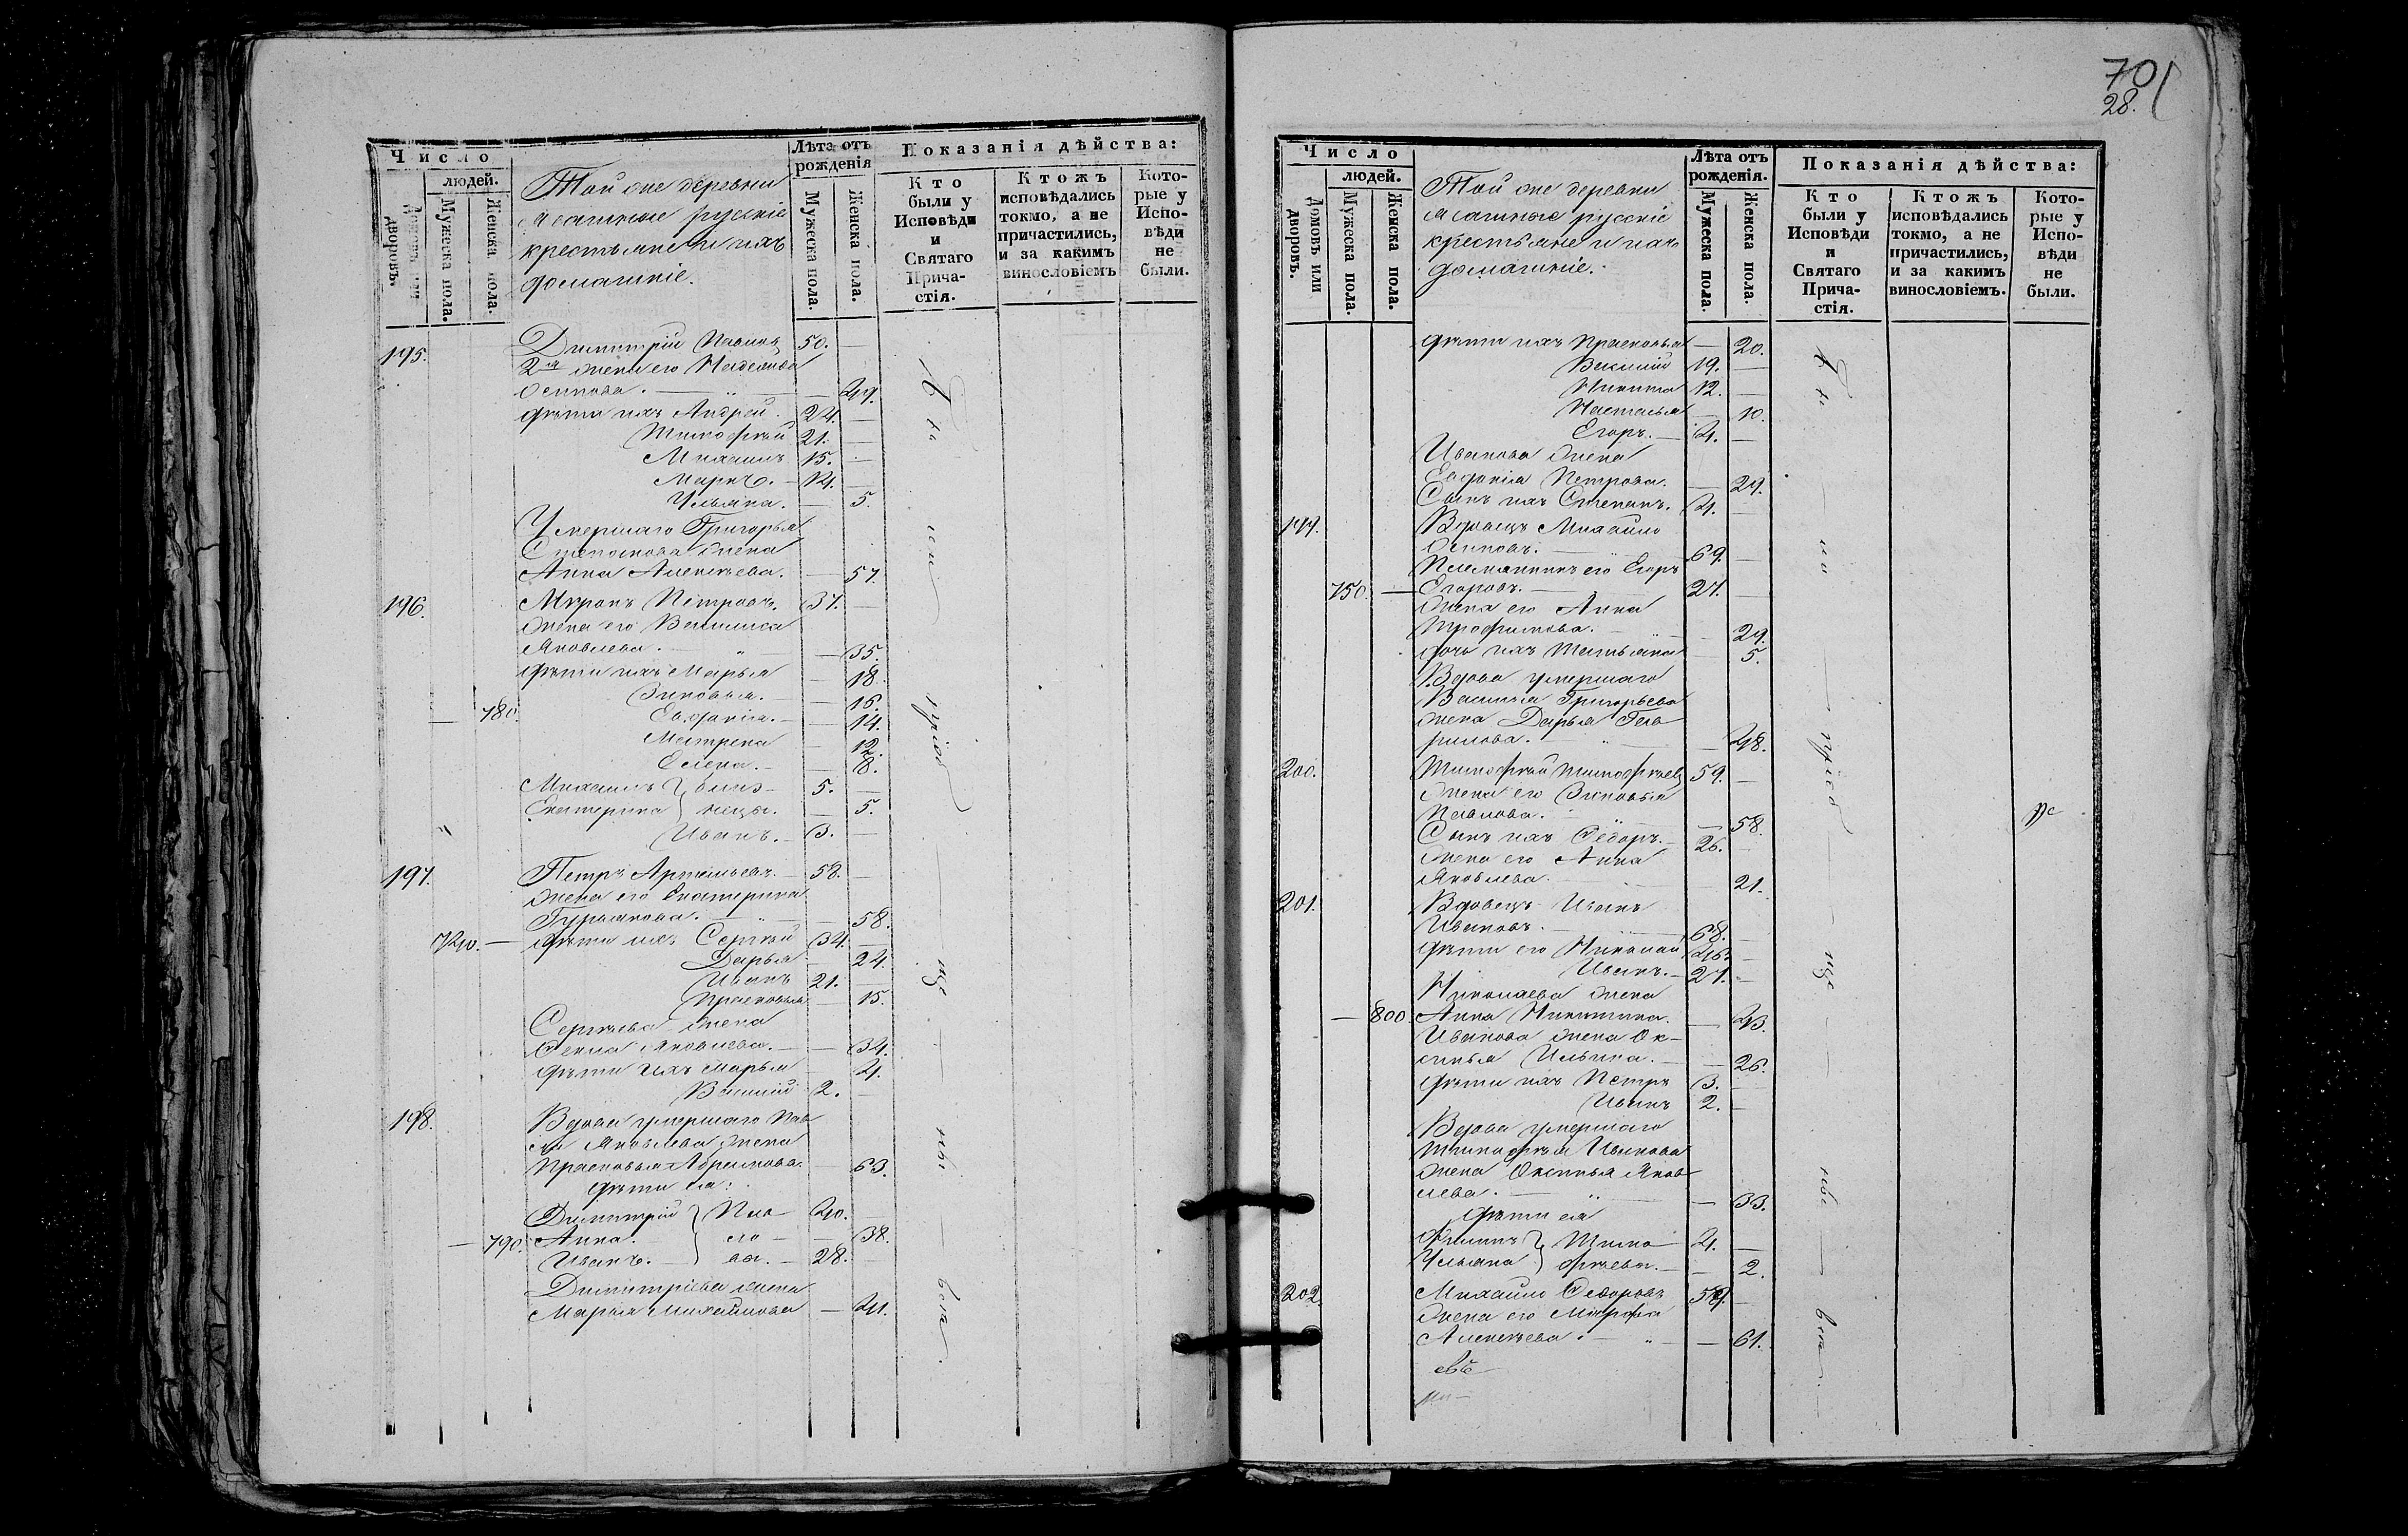 Число
Лѣта отъ рожденія
Показанія дѣйства:
людей.
Домовъ или дворовъ.
Мужеска пола.
Женска пола.
Той же деревни
ясашные русскіе
крестьяне и ихъ
домашніе.
Мужеска пола.
Женска пола.
Кто были у Исповѣди и Святаго Причастія.
Ктожъ исповѣдались токмо, а не причастились, и за какимъ винословіемъ
Которые у Исповѣди не были.
195. Димитрій Павловъ 50. —
2я жена его Неделина
Осипова. — 49.
дѣти ихъ Андрей. 24. —
Тимофѣй 21. —
Михаилъ 15. —
Маркъ. — 14. —
Ульяна. — 5.
Умершаго Григорья
жена
Анна Алексѣева. — 57.
196. Миронъ Петровъ. 37. —
жена его Василиса
Яковлева. — 35.
дѣти ихъ Марья — 18.
Зиновья. — 16.
— 780. Евдокія. — 14.
Матрена — 12.
Елена. — 8.
Михаилъ } близ- 5. —
Екатерина } нецы. — 5.
Иванъ. — 3. —
197. Петръ Артемьевъ. — 58. —
жена его Екатерина
Гурьянова. — 58.
740. — дѣти ихъ Сергѣй 34. —
Дарья — 24.
Иванъ 21. —
Прасковья — 15.
Сергѣева жена
Фекла Яковлева. — 34.
дѣти ихъ Марья — 4.
Василій 2. —
198. Вдова умершаго Пав
ла Яковлева жена
Прасковья Абрамова. — 63.
дѣти ея:
Димитрій } Пав 40. —
— 790. Анна. } ло — 38.
Иванъ. } вы. — 28. —
Димитріева жена
Марья Михайлова — 41.
Всѣ
были
у
70
28.
Число
Лѣта отъ рожденія.
Показанія дѣйства:
людей.
Домовъ или дворовъ.
Мужеска пола.
Женска пола.
Той же деревни
ясашные русскіе
крестьяне и ихъ
домашніе.
Мужеска пола.
Женска пола.
Кто были у Исповѣди и Святаго Причастія.
Ктожъ исповѣдались токмо, а не причастились, и за какимъ винословіемъ.
Которые у Исповѣди не были.
дѣти ихъ Прасковья — 20.
Василій 19. —
Никита 12. —
Настасья — 10.
Егоръ. — 4. —
Иванова жена
Евдокія Петрова. — 24.
Сынъ ихъ Степанъ. 4. —
199. Вдовецъ Михайло
Осиповъ. 69. —
Племянникъ его Егоръ
750. — Егоровъ. — 27. —
жена его Анна
Трофимова. — 29.
дочь ихъ Татьяна — 5.
Вдова умершаго
Василія Григорьева
жена Дарья Гав
рилова. — 48.
200. Тимофѣй Тимофѣевъ 59. —
жена его Зиновья
Павлова. — 58.
Сынъ ихъ Ѳедоръ. — 26. —
жена его Анна
Яковлева. — 21.
201. Вдовецъ Иванъ
Ивановъ. — 68. —
дѣти его Николай 46. —
Иванъ. — 27. —
Николаева жена
— 800. Анна Никитина. — 43.
Иванова жена Ок-
синья Ильина. — 26.
дѣти ихъ Петръ 3. —
Иванъ 2. —
Вдова умершаго
Тимофѣя Иванова
жена Оксинья Яков
лева. — 33.
дѣти ея
Филипъ } Тимо 4. —
Ульяна } фѣевы. — 2.
202. Михайло Ѳедоровъ 59. —
жена его Марфа
Алексѣева. — 61.